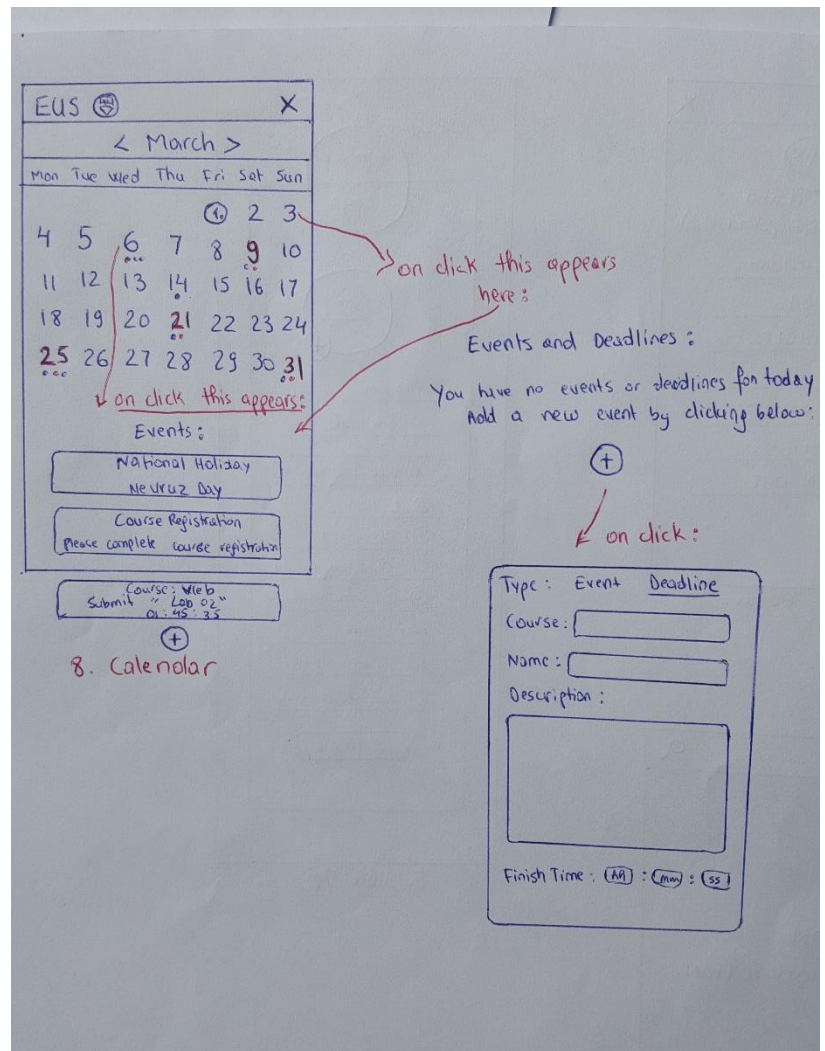 EUS X
< March >
Mon Tue Wed Thu Fri Sat Sun
1. 2 3
4 5 6 7 8 9 10
11 12 13 14 15 16 17
18 19 20 21 22 23 24
25 26 27 28 29 30 31
on click this appears:
Events:
National Holiday
Nevruz Day
Course Registration
Please complete course registration
Course: Web
Submit "Lab 02"
01:45:35
+
8. Calendar
on click this appears
here:
Events and Deadlines:
You have no events or deadlines for today
Add a new event by clicking below:
+
on click:
Type: Event Deadline
Course:
Name:
Description:
Finish Time: : mm : ss